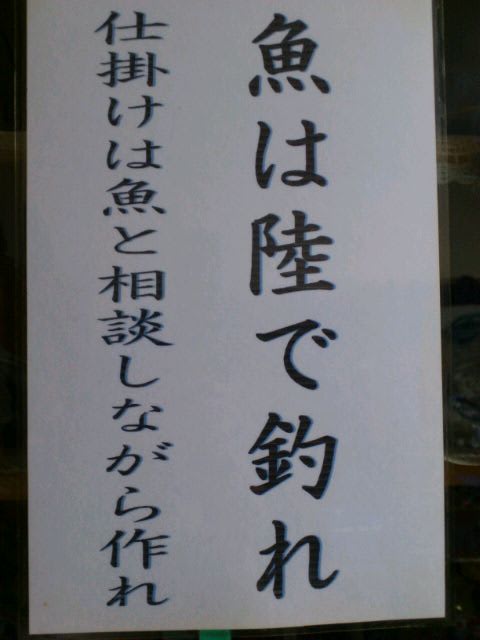 魚は陸で釣れ
仕掛けは魚と相談しながら作れ